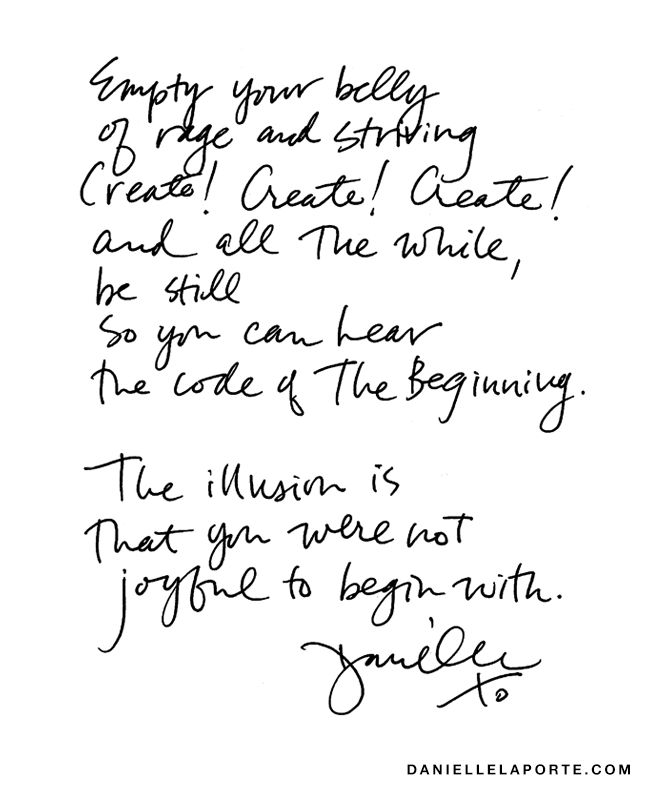 Empty your belly
of rage and striving
Create! Create! Create!
and all The while,
be still
So you can hear
the code of The Beginning.
The illusion is
That you were not
joyful to begin with.
Danielle
xo
DANIELLELAPORTE.COM